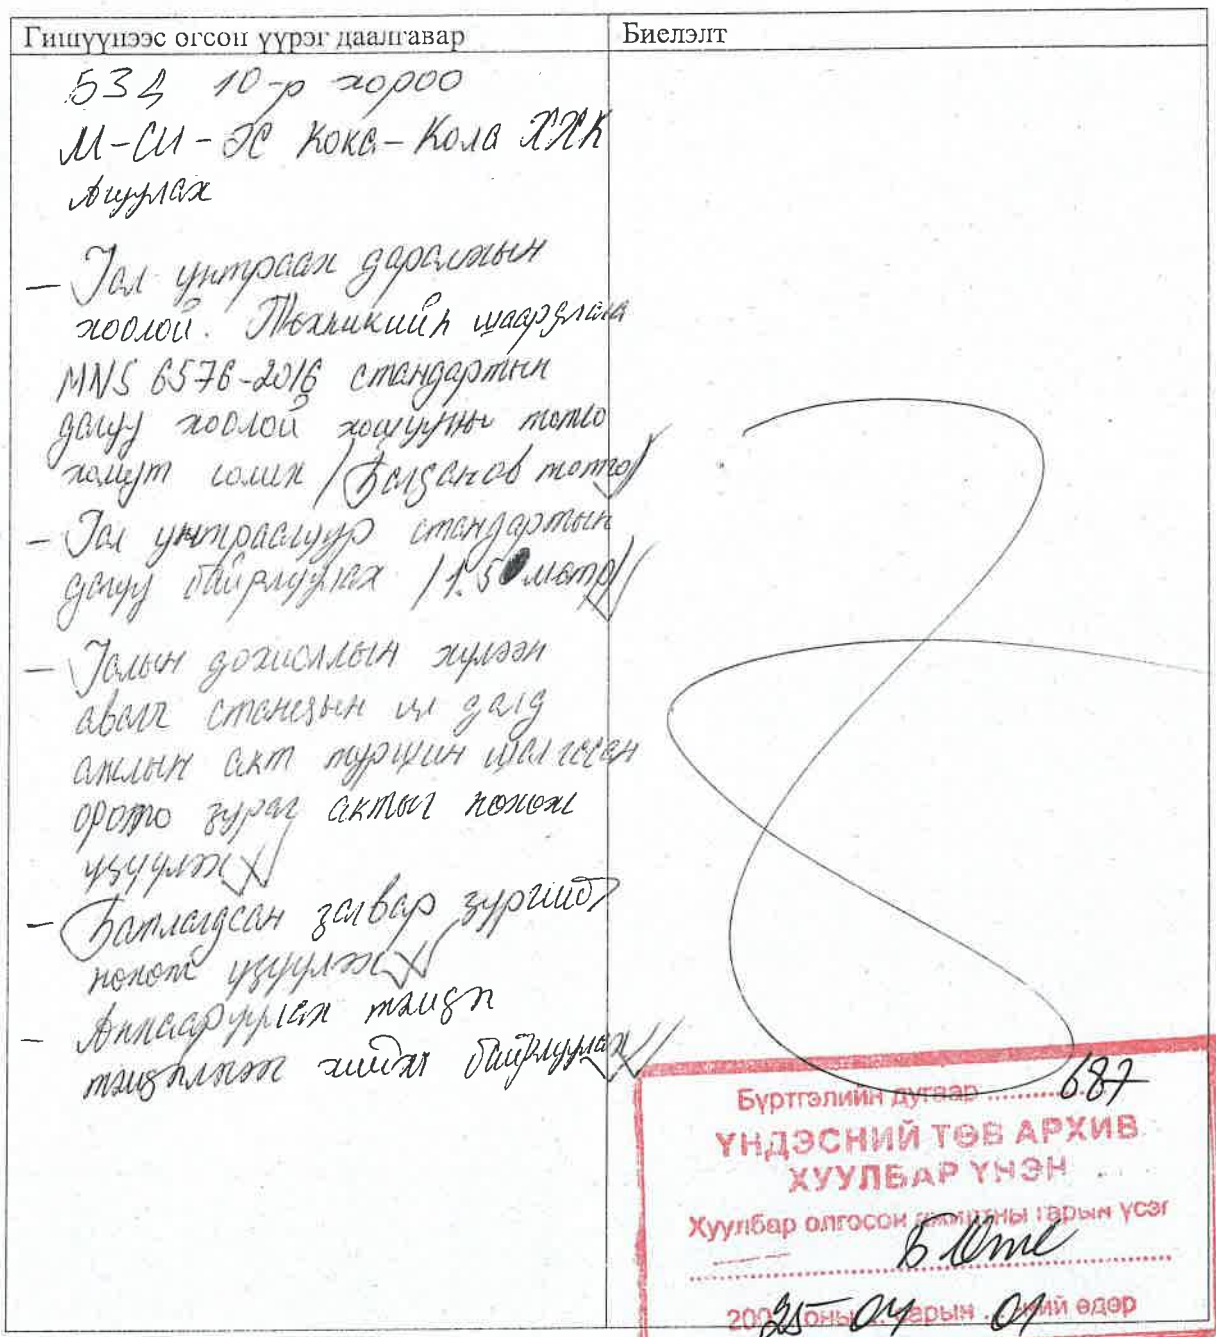 Гишүүнээс өгсөн үүрэг даалгавар
Биелэлт
БЗД 10-р хороо
М-Си-Эс Кока-Кола ХХК
Агуулах
- Гал унтраах даралтын
хоолой. Техникийн шаардлага
MNS 6576-2016 стандартын
дагуу хоолой хошууны толгой
хомут солих / Богданов толгой/
- Гал унтраагуур стандартын
дагуу байрлуулах /1.5 метр/
- Галын дохиоллын хүлээн
авагч станцын ил далд
ажлын акт туршин шалгасан
зураг актыг нөхөж
үзүүлэх
- Батлагдсан загвар зургийг
нөхөж үзүүлэх
- Анхааруулах тэмдэг
тэмдэглэгээг хийж байрлуулах
Бүртгэлийн дугаар ........ 687
ҮНДЭСНИЙ ТӨВ АРХИВ
ХУУЛБАР ҮНЭН
Хуулбар олгосон ажилтны гарын үсэг
2025 оны 04 сарын 01 ний өдөр